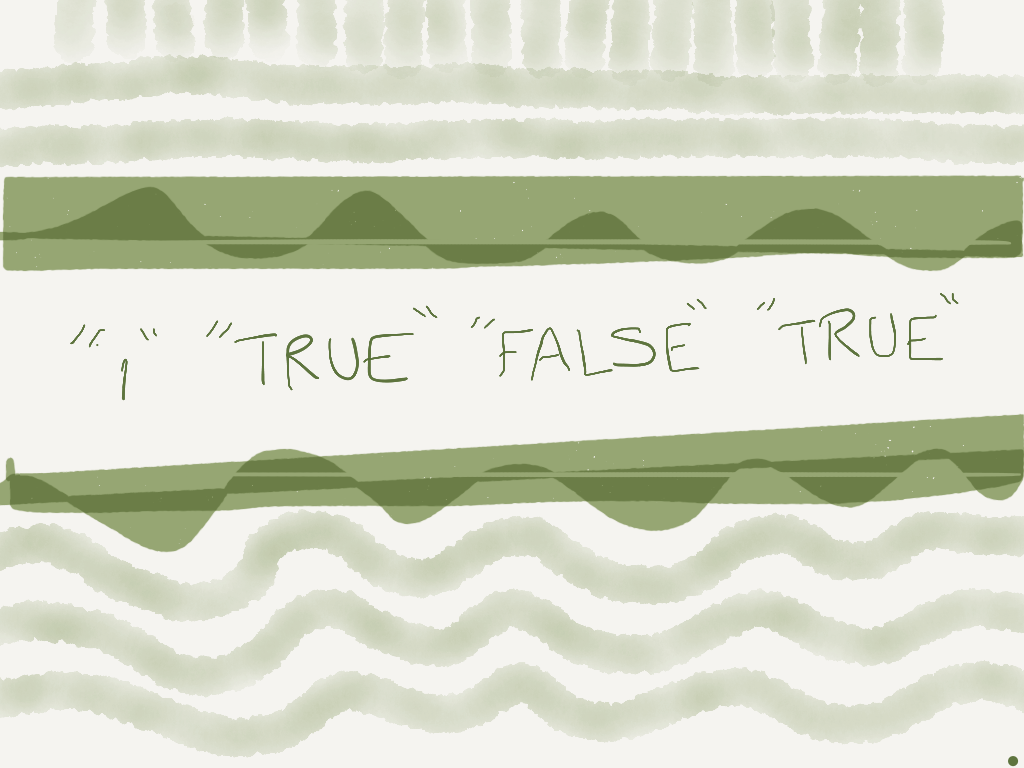 "," "TRUE" "FALSE" "TRUE"